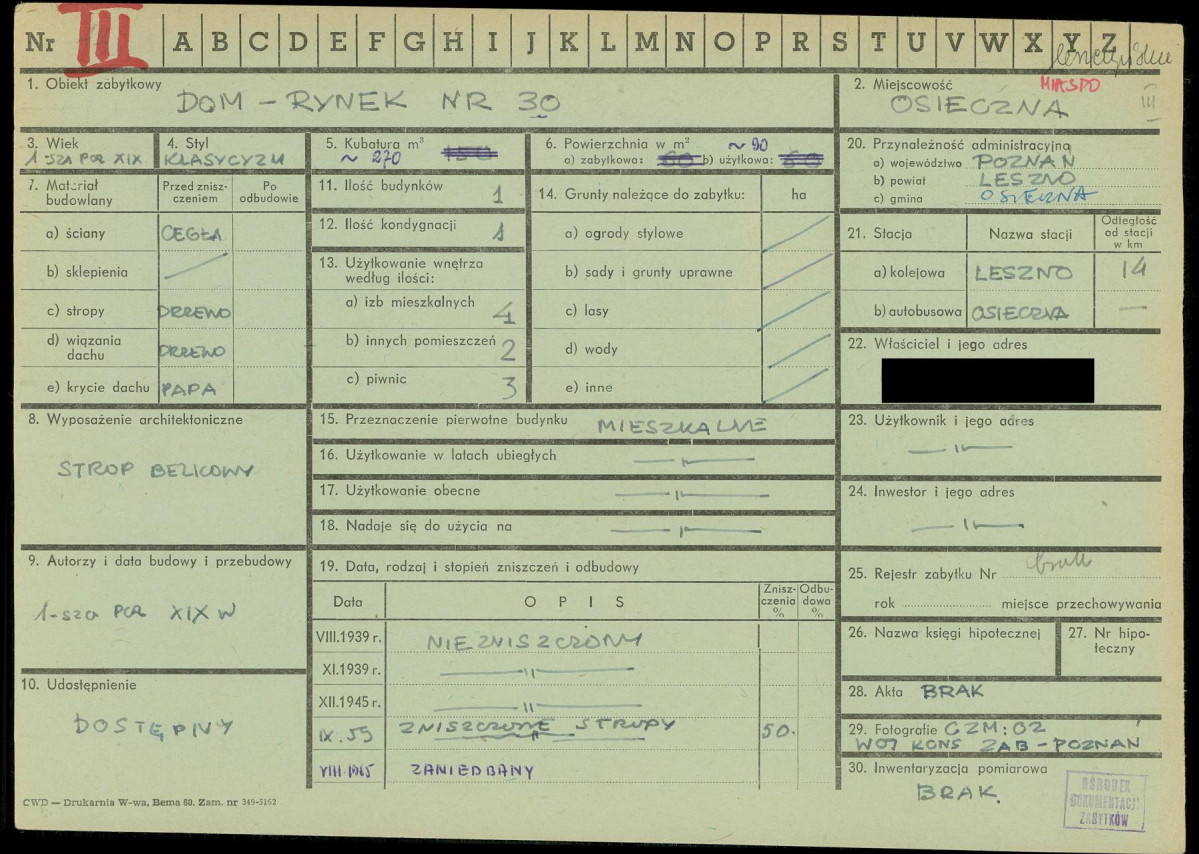 Nr III A B C D E F G H I J K L M N O P R S T U V W X Y Z
1. Obiekt zabytkowy
DOM – RYNEK NR 30
2. Miejscowość MIASTO
OSIECZNA III
3. Wiek
1-SZA POŁ XIX
4. Styl
KLASYCYZM
5. Kubatura m³
~ 270 150
6. Powierzchnia w m² ~ 90
a) zabytkowa: 60 b) użytkowa: 60
20. Przynależność administracyjna
a) województwo POZNAŃ
b) powiat LESZNO
c) gmina OSIECZNA
7. Materiał budowlany
Przed zniszczeniem
Po odbudowie
a) ściany CEGŁA
b) sklepienia
c) stropy DRZEWO
d) wiązania dachu DRZEWO
e) krycie dachu PAPA
11. Ilość budynków 1
12. Ilość kondygnacji 1
13. Użytkowanie wnętrza
według ilości:
a) izb mieszkalnych 4
b) innych pomieszczeń 2
c) piwnic 3
14. Grunty należące do zabytku: ha
a) ogrody stylowe
b) sady i grunty uprawne
c) lasy
d) wody
e) inne
21. Stacja Nazwa stacji Odległość od stacji w km
a) kolejowa LESZNO 14
b) autobusowa OSIECZNA —
22. Właściciel i jego adres
8. Wyposażenie architektoniczne
STROP BELKOWY
15. Przeznaczenie pierwotne budynku MIESZKALNE
16. Użytkowanie w latach ubiegłych —"—
17. Użytkowanie obecne —"—
18. Nadaje się do użycia na —"—
23. Użytkownik i jego adres
—"—
24. Inwestor i jego adres
—"—
9. Autorzy i data budowy i przebudowy
1-sza POŁ XIX W
19. Data, rodzaj i stopień zniszczeń i odbudowy
Data O P I S Zniszczenia % Odbudowa %
VIII.1939 r. NIEZNISZCZONY
XI.1939 r. —"—
XII.1945 r. —"—
IX.59 ZNISZCZONE STROPY 50.
VIII.1965 ZANIEDBANY
25. Rejestr zabytku Nr brak
rok miejsce przechowywania
26. Nazwa księgi hipotecznej
27. Nr hipoteczny
10. Udostępnienie
DOSTĘPNY
28. Akta BRAK
29. Fotografie CZM: OZ
WOJ KONS ZAB – POZNAŃ
30. Inwentaryzacja pomiarowa
BRAK.
OŚRODEK
DOKUMENTACJI
ZABYTKÓW
CWD — Drukarnia W-wa, Bema 60. Zam. nr 349-5162